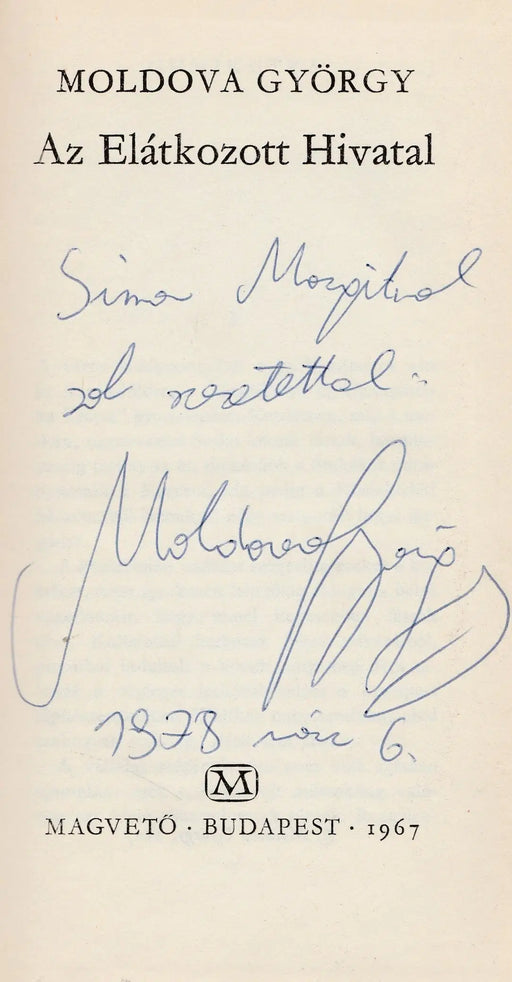 MOLDOVA GYÖRGY
Az Elátkozott Hivatal
Simon Margitnak
sok szeretettel:
Moldova György
1978 márc 6.
M
MAGVETŐ · BUDAPEST · 1967